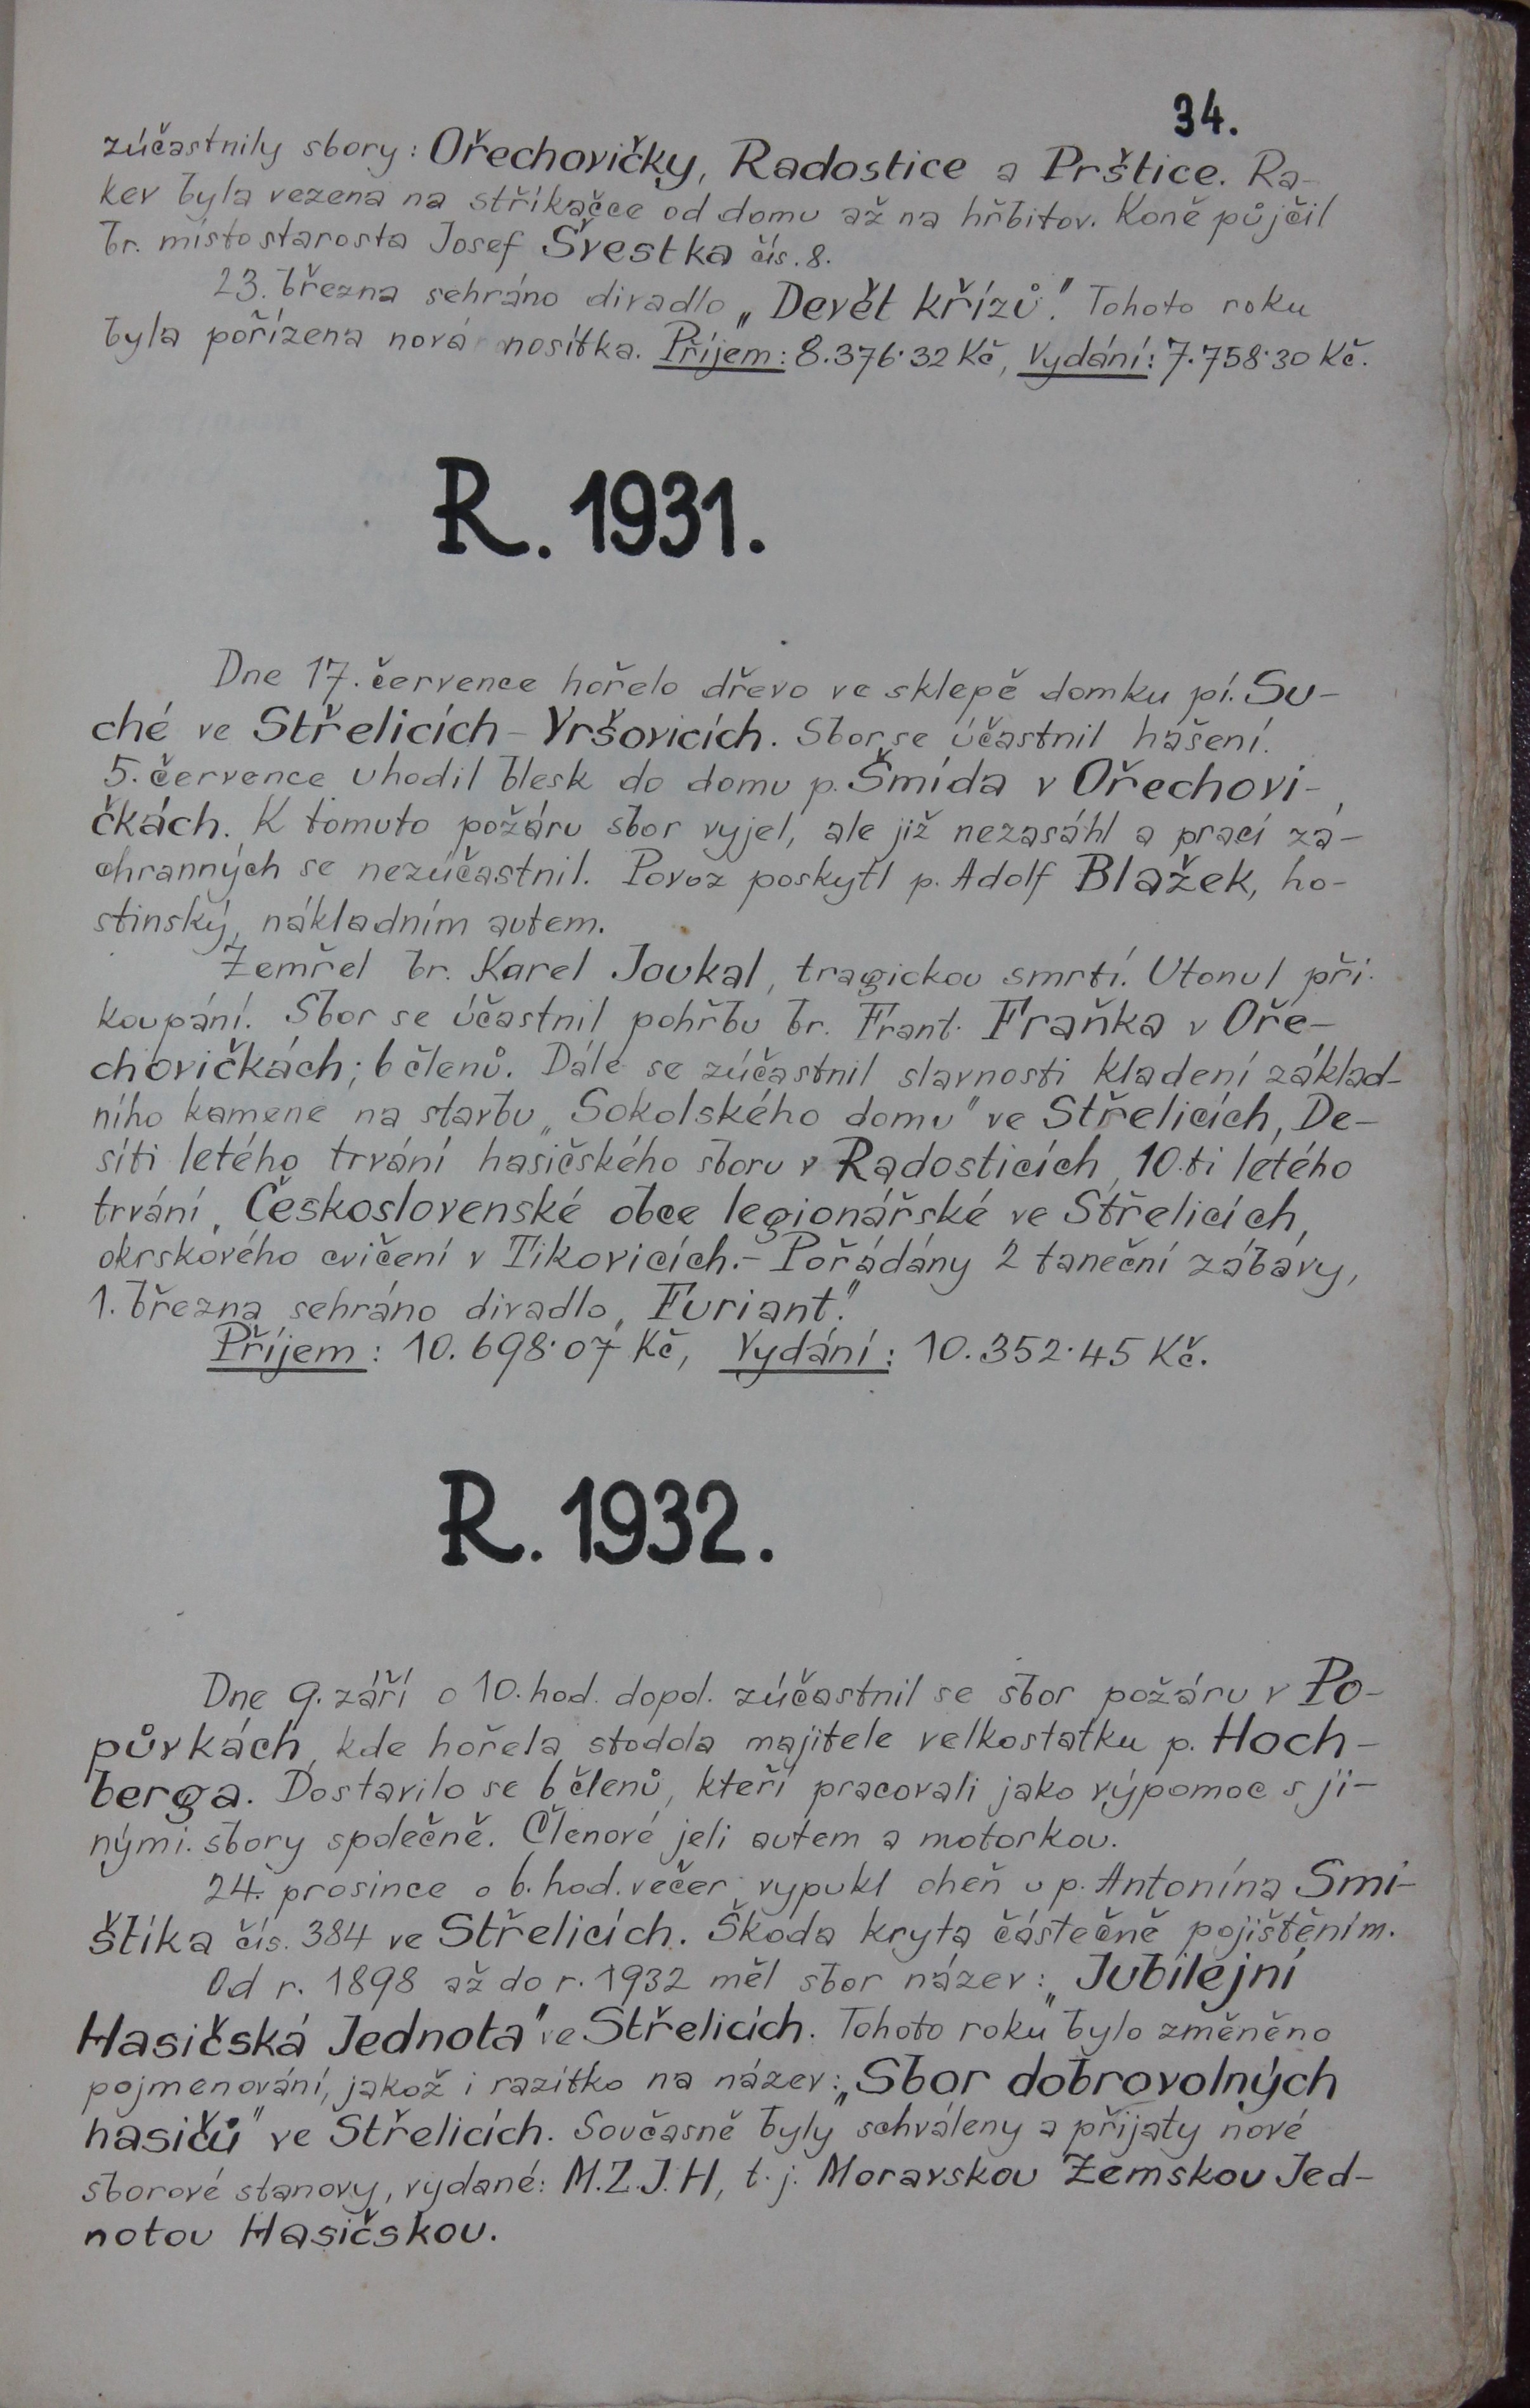 34.
zúčastnily sbory: Ořechovičky, Radostice a Prštice. Ra-
kev byla vezena na stříkačce od domu až na hřbitov. Koně půjčil
br. místostarosta Josef Švestka čís. 8.
23. března sehráno divadlo „Devět křížů." Tohoto roku
byla pořízena nová nosítka. Příjem: 8.376·32 Kč, Vydání: 7.758·30 Kč.
R. 1931.
Dne 17. července hořelo dřevo ve sklepě domku pí. Su-
ché ve Střelicích - Vršovicích. Sbor se účastnil hašení.
5. července uhodil blesk do domu p. Šmída v Ořechovi-
čkách. K tomuto požáru sbor vyjel, ale již nezasáhl a prací zá-
chranných se nezúčastnil. Povoz poskytl p. Adolf Blažek, ho-
stinský, nákladním autem.
Zemřel br. Karel Joukal, tragickou smrtí. Utonul při
koupání. Sbor se účastnil pohřbu br. Frant. Fraňka v Oře-
chovičkách; 6 členů. Dále se zúčastnil slavnosti kladení základ-
ního kamene na stavbu „Sokolského domu" ve Střelicích, De-
síti letého trvání hasičského sboru v Radosticích, 10.ti letého
trvání, Československé obce legionářské ve Střelicích,
okrskového cvičení v Tikovicích.- Pořádány 2 taneční zábavy,
1. března sehráno divadlo „Furiant."
Příjem: 10.698·07 Kč, Vydání: 10.352·45 Kč.
R. 1932.
Dne 9. září o 10. hod. dopol. zúčastnil se sbor požáru v Po-
půvkách, kde hořela stodola majitele velkostatku p. Hoch-
berga. Dostavilo se 6 členů, kteří pracovali jako výpomoc s ji-
nými sbory společně. Členové jeli autem a motorkou.
24. prosince o 6. hod. večer vypukl oheň u p. Antonína Smi-
štíka čís. 384 ve Střelicích. Škoda kryta částečně pojištěním.
Od r. 1898 až do r. 1932 měl sbor název: „Jubilejní
Hasičská Jednota" ve Střelicích. Tohoto roku bylo změněno
pojmenování, jakož i razítko na název: „Sbor dobrovolných
hasičů" ve Střelicích. Současně byly schváleny a přijaty nové
sborové stanovy, vydané: M.Z.J.H, t. j. Moravskou Zemskou Jed-
notou Hasičskou.